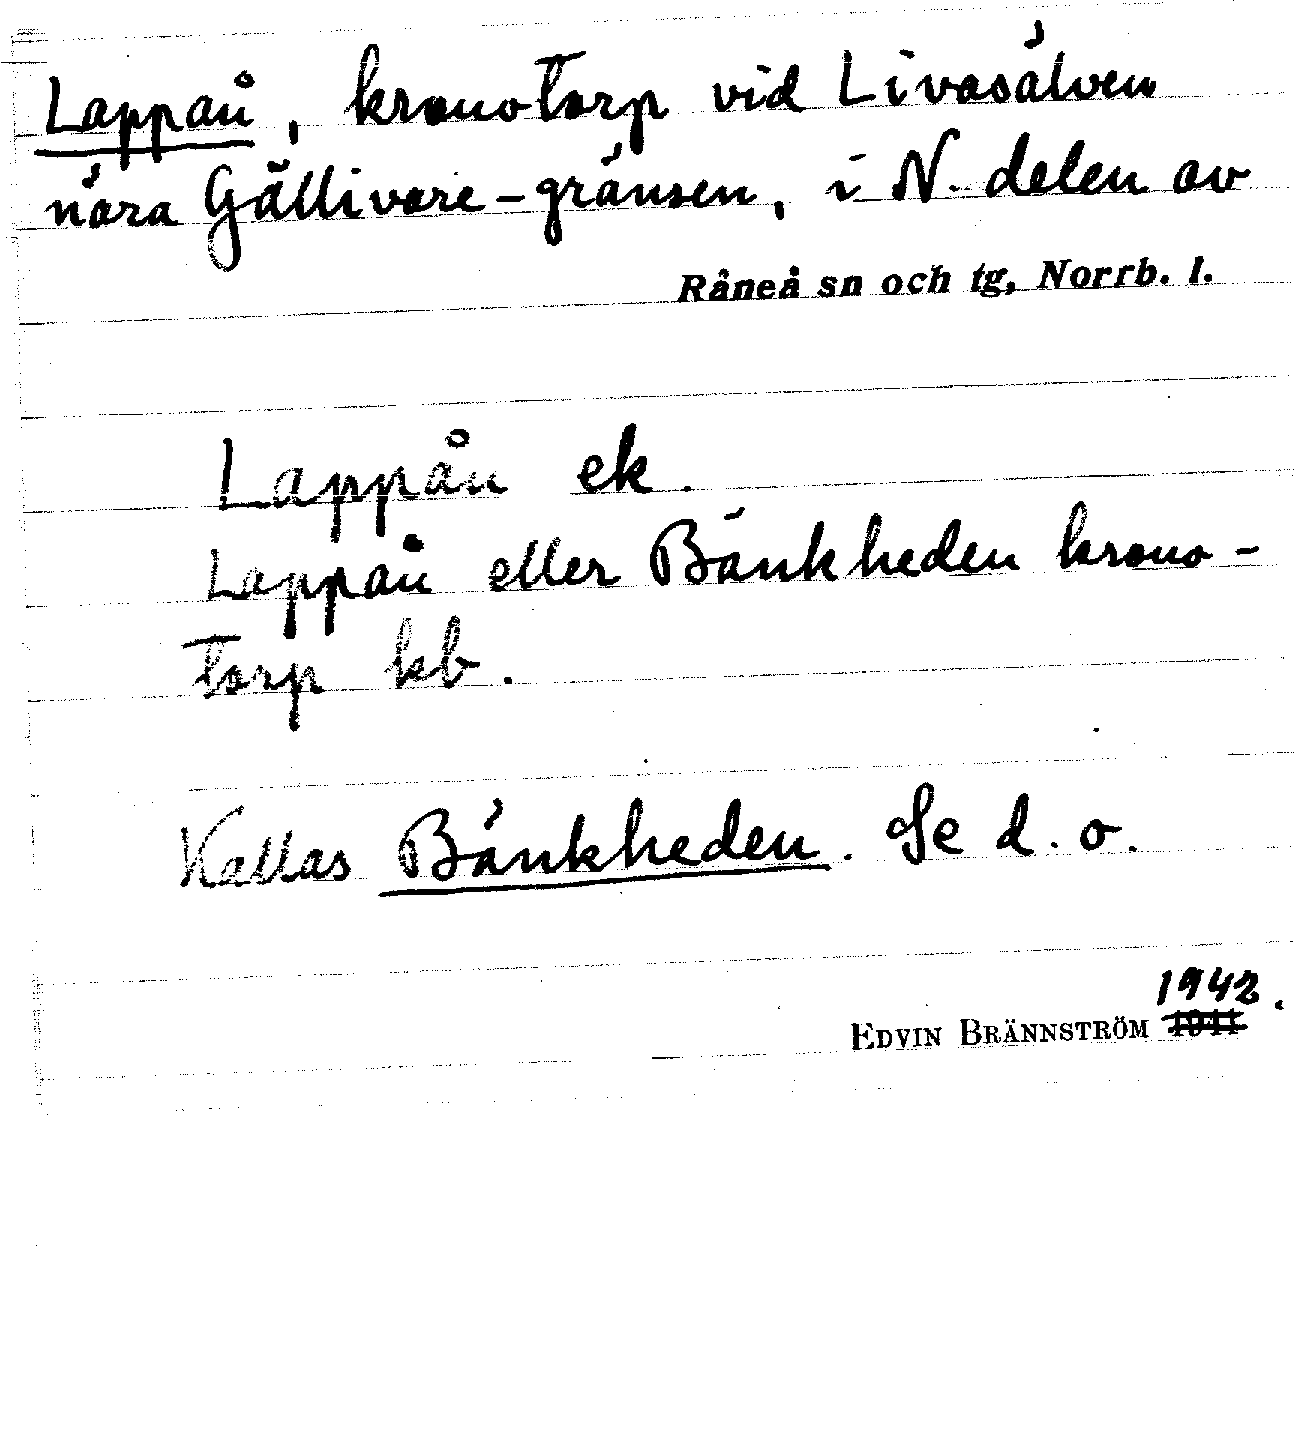 Lappån, kronotorp vid Livasälven
nära Gällivare-gränsen, i N. delen av
Råneå sn och tg, Norrb. l.
Lappån ek.
Lappån eller Bänkheden krono-
torp kb.
Kallas Bänkheden. Se d. o.
1942.
EDVIN BRÄNNSTRÖM 1941